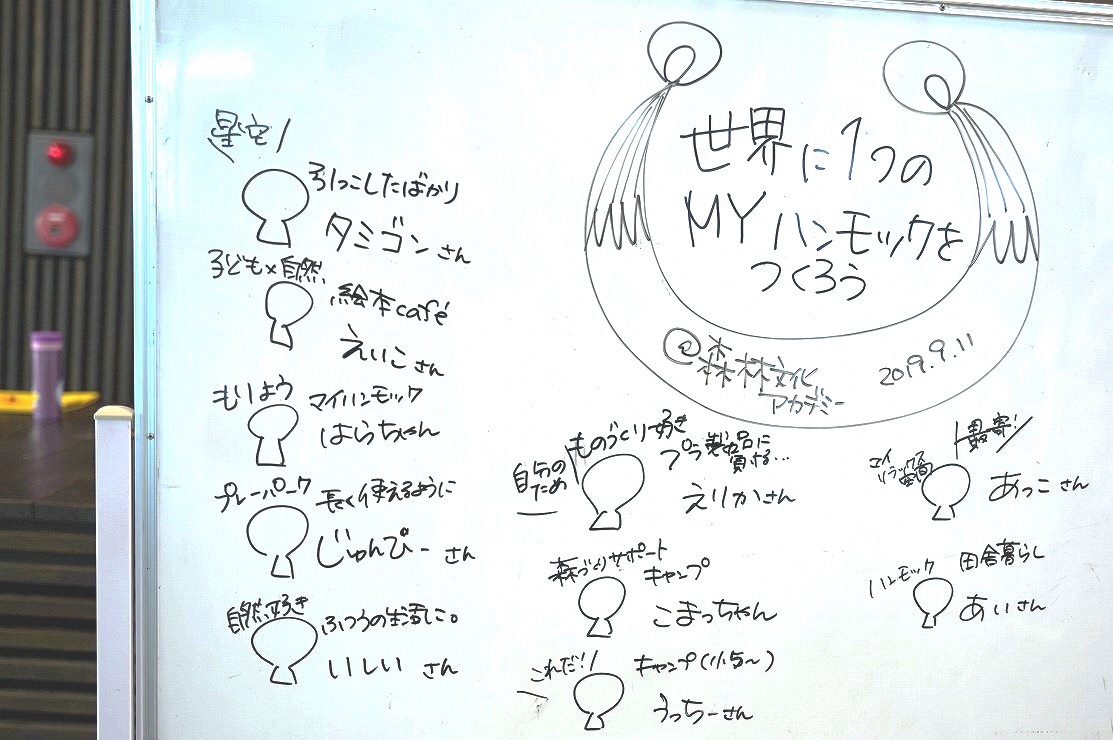 世界に1つの
MYハンモックを
つくろう
@森林文化
アカデミー
2019.9.11
星空!
引っこしたばかり
タミゴンさん
子ども×自然
絵本café
えいこさん
もりよう
マイハンモック
はらちゃん
プレーパーク
長く使えるように
じゅんぴーさん
自然好き
ふつうの生活に。
いしいさん
ものづくり好き
自分の
ため
プラ製品に
負ける…
えりかさん
森づくりサポート
キャンプ
こまっちゃん
これだ!!
キャンプ(小5〜)
うっちーさん
最寄!
マイ
リラックス
空間
あっこさん
ハンモック
田舎暮らし
あいさん